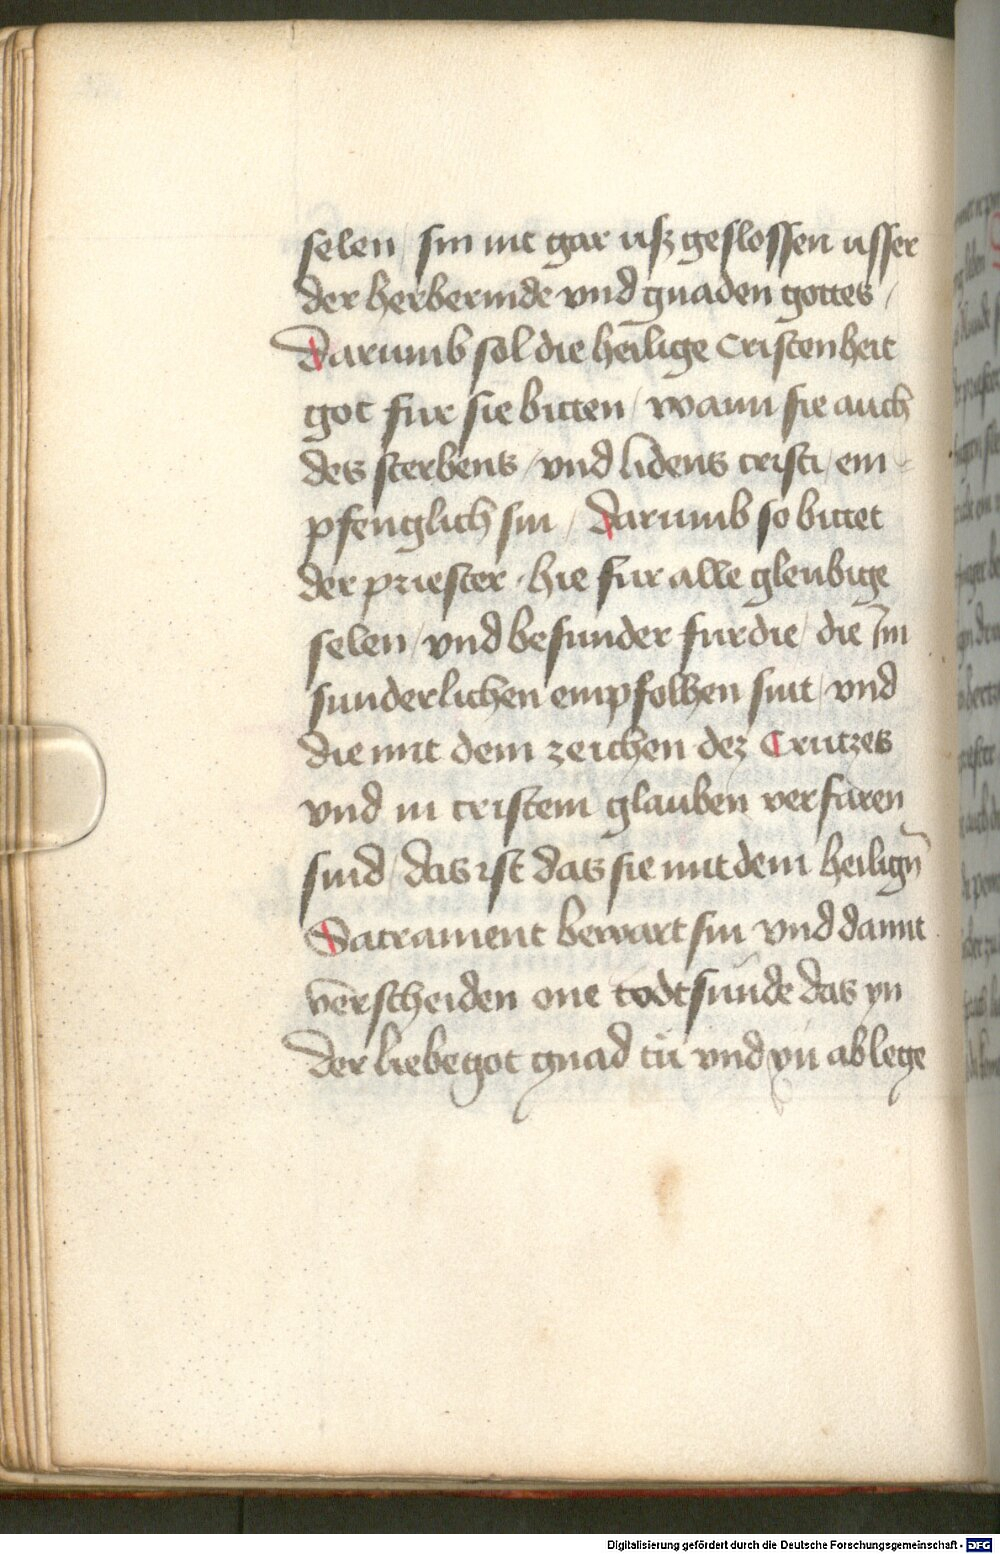 selen / sin nit gar usz geslossen usser
der herberinde vnd gnaden gottes /
Darumb sol die heilige Cristenheit
got fur sie bitten / wann sie auch
des sterbens / vnd lidens cristi / em
pfenglich sin / Darumb so bittet
der priester / hie fur alle gleubige
selen / vnd besunder fur die / die Im
sunderlichen empfolhen sint / vnd
die mit dem zeichen dez Crutzes
vnd in cristem glauben verfaren
sind / das ist das sie mit dem heiligñ
Sacrament bewart sin vnd damit
verscheiden one todtsunde das yn
Der liebe got gnad tü vnd yn ablege
Digitalisierung gefördert durch die Deutsche Forschungsgemeinschaft - DFG